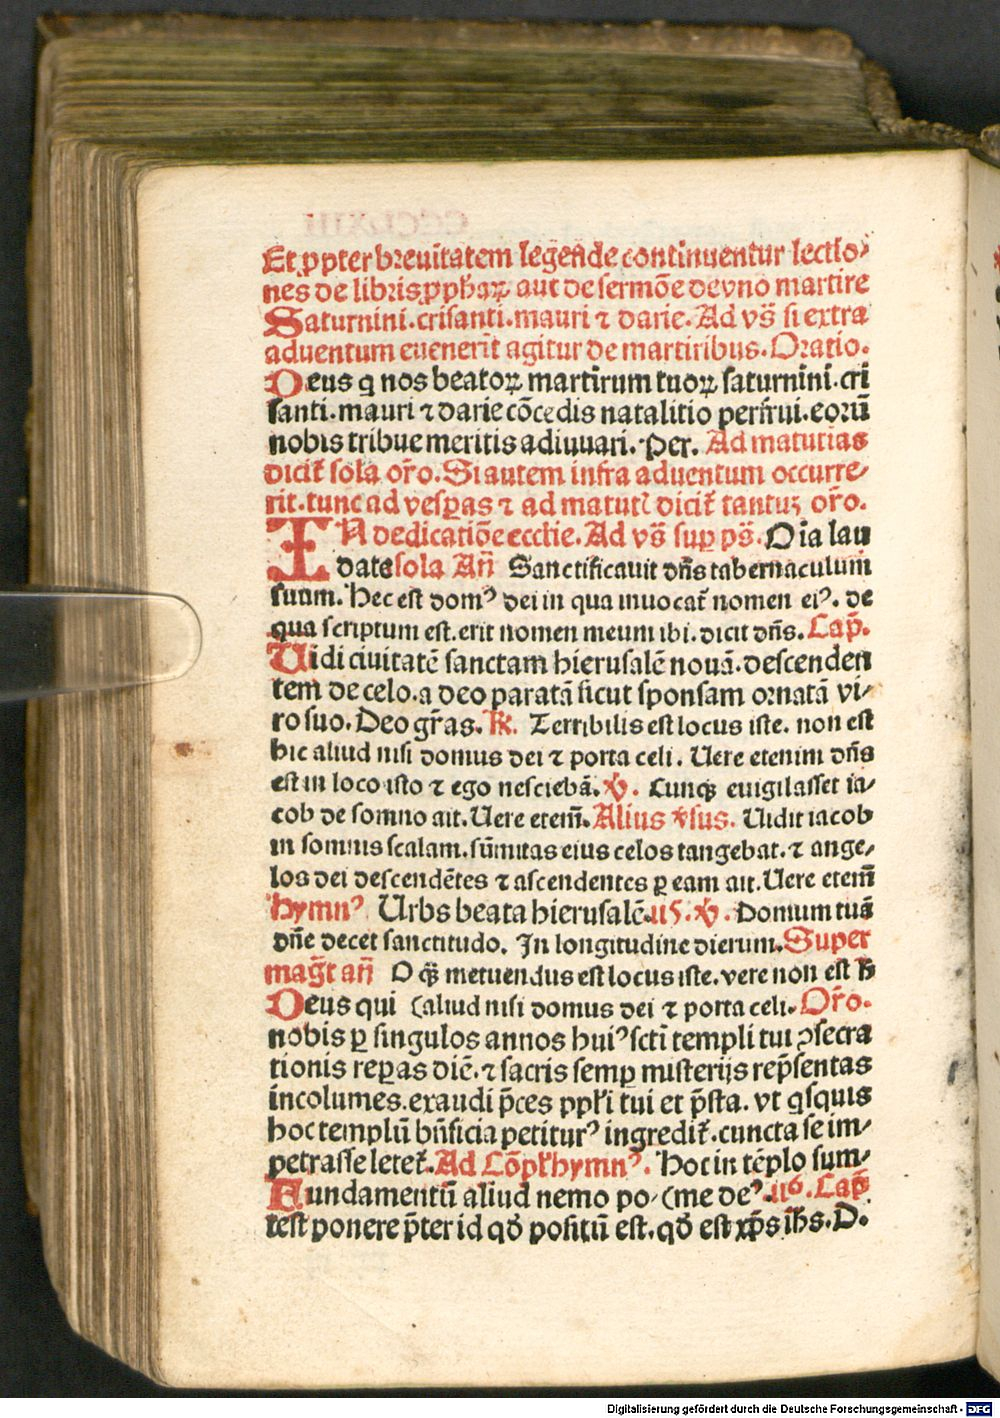 Et ꝓpter breuĩtatem legẽde continuentur lectio⸗
nes de libris ꝓph̃aꝝ aut de sermõe de vno martire
Saturnini. crisanti. mauri ⁊ darie. Ad vs̃ si extra
aduentum euenerit̃ agitur de martiribus. Oratio.
Deus q̇ nos beatoꝝ martirum tuoꝝ saturnini. cri
santi. mauri ⁊ darie cõcedis natalitio perfrui. eorũ
nobis tribue meritis adiuuari. Per. Ad matutias
dicit̃ sola or̃o. Si autem infra aduentum occurre⸗
rit. tunc ad vesp̱as ⁊ ad matut̃ dicit̃ tantuꝫ or̃o.
IN dedicatiõe eccl̃ie. Ad vs̃ sup̱ ps̃. Oĩa lau
date sola Añ Sanctificauit dñs tabernaculum
suum. Hec est domꝰ dei in qua inuocat̃ nomen eiꝰ. de
qua scriptum est. erit nomen meum ibi. dicit dñs. Cap̃.
Vidi ciuitatẽ sanctam hierusalẽ nouã. descenden
tem de celo. a deo paratã sicut sponsam ornatã vi⸗
ro suo. Deo gr̃as. ℟. Terribilis est locus iste. non est
hic aliud nisi domus dei ⁊ porta celi. Uere etenim dñs
est in loco isto ⁊ ego nesciebã. ℣. Cunqꝫ euigilasset ia⸗
cob de somno ait. Uere etem̃. Alius ꝟsus. Uidit iacob
in somnis scalam. sũmitas eius celos tangebat. ⁊ ange⸗
los dei descendẽtes ⁊ ascendentes ꝑ eam ait. Uere etem̃
hymnꝰ Urbs beata hierusalẽ. 115. ℣. Domum tuã
dñe decet sanctitudo. In longitudine dierum. Super
mag̃t añ O qꝫ metuendus est locus iste. vere non est h̃
Deus qui (aliud nisi domus dei ⁊ porta celi. Or̃o.
nobis ꝑ singulos annos huiꝰ sctĩ templi tui ꝯsecra
tionis rep̱as diẽ. ⁊ sacris semp̱ misterijs rep̃sentas
incolumes. exaudi p̃ces pp̃li tui et p̃sta. vt q̇squis
hoc templũ bñficia petiturꝰ ingredit̃. cuncta se im⸗
petrasse letet̃. Ad Cõpl̃ hymnꝰ. Hoc in tẽplo sum⸗
Fundamentũ aliud nemo po⸗(me deꝰ. 116. Cap̃
test ponere p̃ter id qđ positũ est. qđ est xp̃s ih̃s. D.
Digitalisierung gefördert durch die Deutsche Forschungsgemeinschaft - DFG